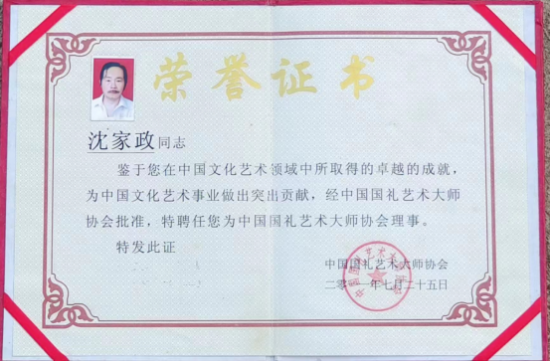 荣誉证书
沈家政同志
鉴于您在中国文化艺术领域中所取得的卓越的成就，
为中国文化艺术事业做出突出贡献，经中国国礼艺术大师
协会批准，特聘任您为中国国礼艺术大师协会理事。
特发此证
中国国礼艺术大师协会
年七月二十五日